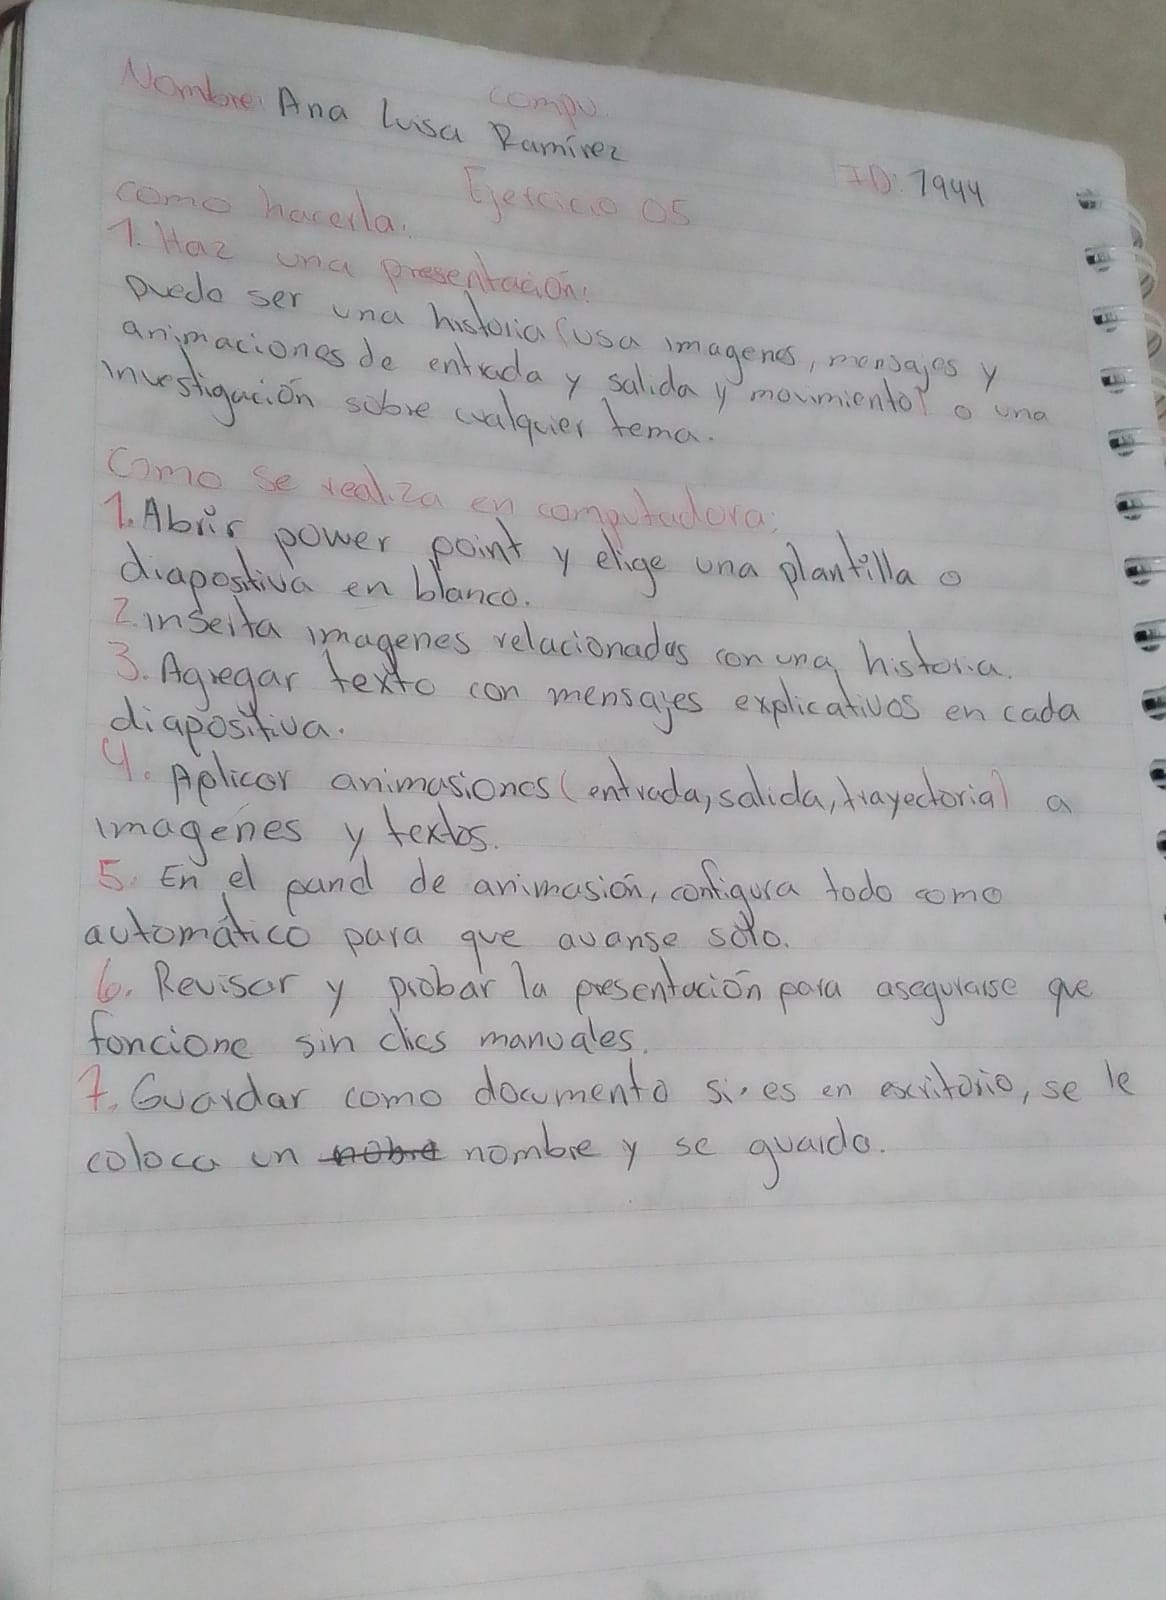 compu.
Nombre: Ana Luisa Ramírez
ID: 7944
Ejercicio 05
como hacerla:
1. Haz una presentación:
Puede ser una historia (usa imagenes, mensajes y
animaciones de entrada y salida y movimiento) o una
investigación sobre cualquier tema.
Como se realiza en computadora:
1. Abrir power point y elige una plantilla o
diapositiva en blanco.
2. inserta imagenes relacionadas con una historia.
3. Agregar texto con mensajes explicativos en cada
diapositiva.
4. Aplicar animasiones (entrada, salida, trayectoria) a
imagenes y textos.
5. En el panel de animasión, configura todo como
automático para que avanse solo.
6. Revisar y probar la presentación para asegurarse que
foncione sin clics manuales.
7. Guardar como documento si es en escritorio, se le
coloca un nobre nombre y se guarda.